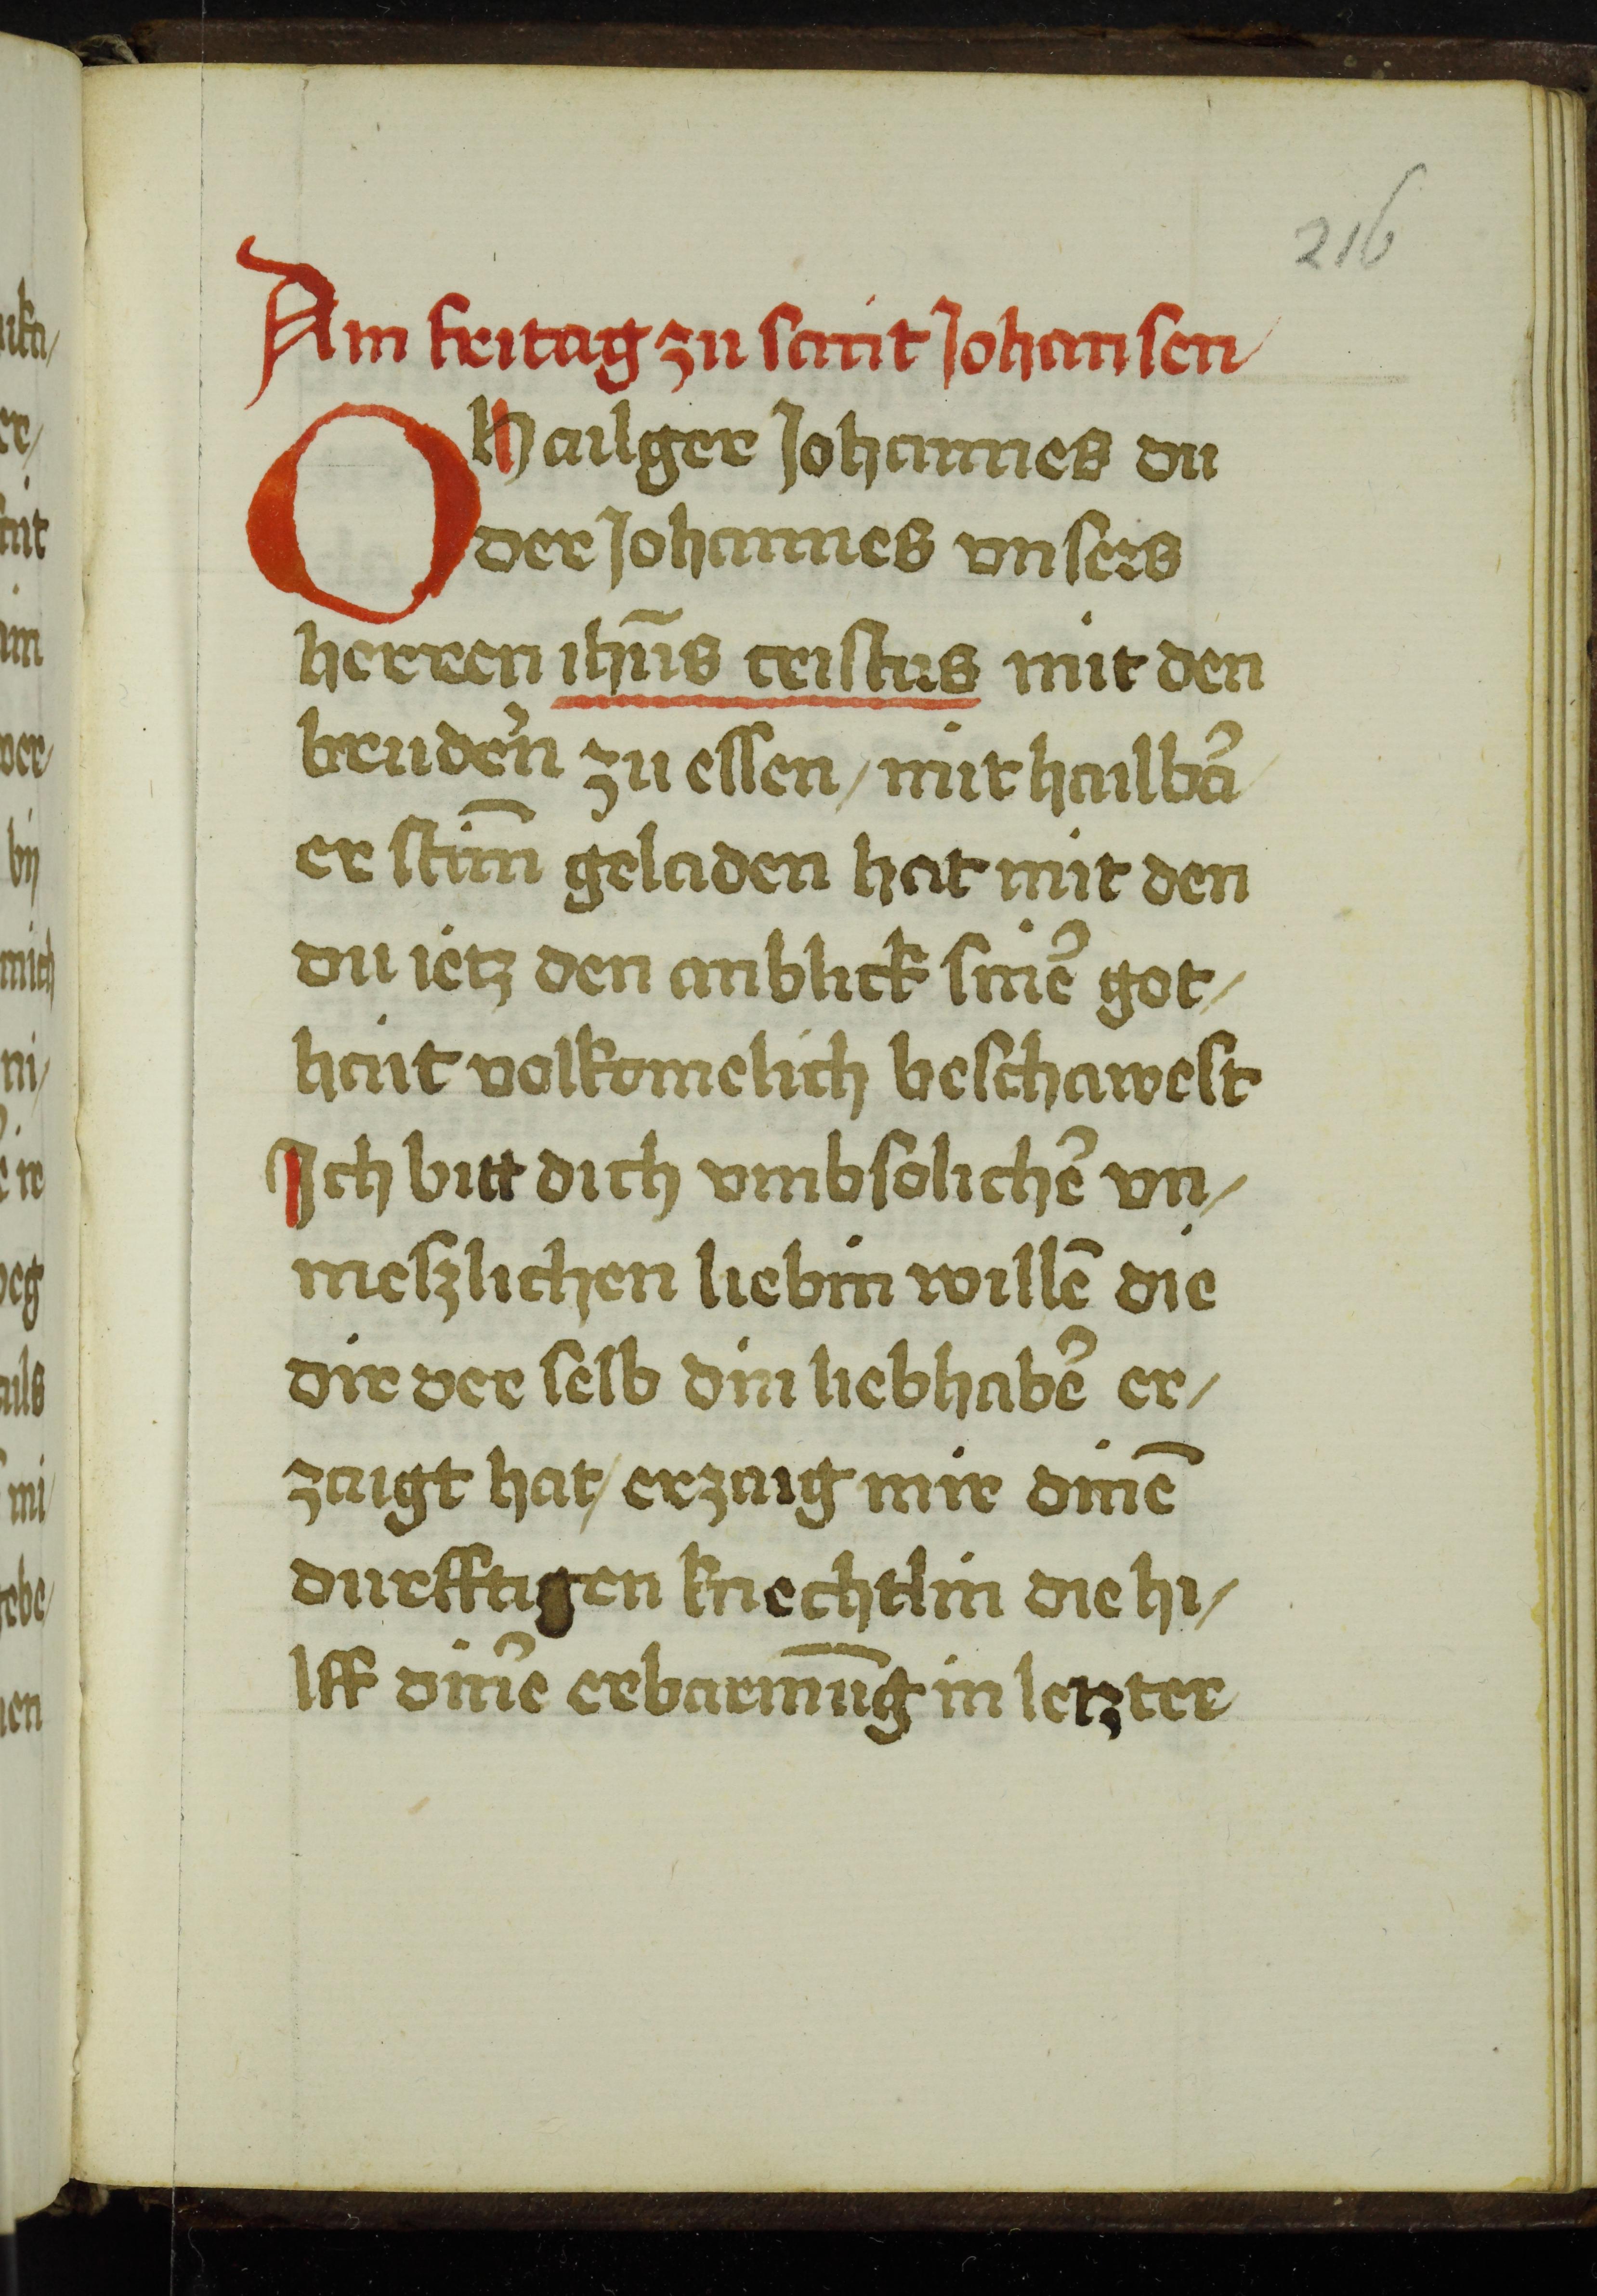 216
Am fritag zu sant Johansen
O Hailger Johannes du
der Johannes vnsers
herren ihus̄ cristus mit den
brudern̉ zu essen / mit hailba᷑
er stim̄ geladen hat mit den
du ietz den anblick sine᷑ got /
hait volkomelich beschawest
Ich bitt dich vmb soliche᷑ vn /
meszlichen liebin willē die
dir der selb din liebhabe᷑ er /
zaigt hat / erzaig mir dinē
durfftigen knechtlin die hi /
lff dine᷑ erbarmūg in letzter